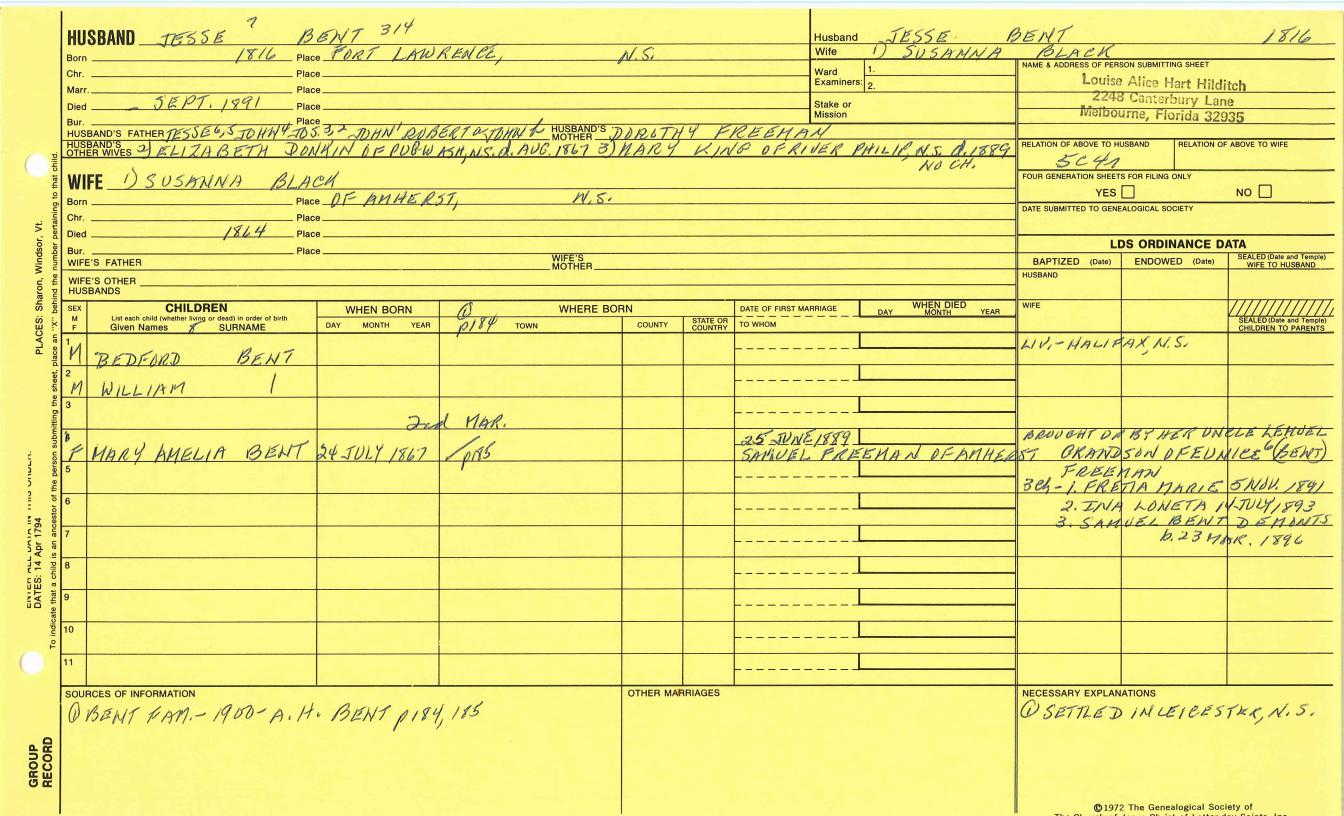 HUSBAND JESSE 7 BENT 314
Born 1816 Place FORT LAWRENCE, N.S.
Chr. Place
Marr. Place
Died SEPT. 1891 Place
Bur. Place
HUSBAND'S FATHER JESSE 6,5 JOHN 4 JOS. 3,2 JOHN 1 ROBERT JOHN HUSBAND'S MOTHER DOROTHY FREEMAN
HUSBAND'S OTHER WIVES 2) ELIZABETH DONKIN OF PUGWASH, N.S. d. AUG. 1867 3) MARY KING OF RIVER PHILIP, N.S. d. 1889
NO CH.
WIFE 1) SUSANNA BLACK
Born Place OF AMHERST, N.S.
Chr. Place
Died 1864 Place
Bur. Place
WIFE'S FATHER WIFE'S MOTHER
WIFE'S OTHER HUSBANDS
Husband JESSE BENT 1816
Wife 1) SUSANNA BLACK
Ward Examiners: 1.
2.
Stake or Mission
NAME & ADDRESS OF PERSON SUBMITTING SHEET
Louise Alice Hart Hilditch
2248 Canterbury Lane
Melbourne, Florida 32935
RELATION OF ABOVE TO HUSBAND RELATION OF ABOVE TO WIFE
5C4r
FOUR GENERATION SHEETS FOR FILING ONLY
YES NO
DATE SUBMITTED TO GENEALOGICAL SOCIETY
LDS ORDINANCE DATA
BAPTIZED (Date) ENDOWED (Date) SEALED (Date and Temple) WIFE TO HUSBAND
HUSBAND
WIFE
SEALED (Date and Temple) CHILDREN TO PARENTS
SEX M F
CHILDREN
List each child (whether living or dead) in order of birth
Given Names 8 SURNAME
WHEN BORN
DAY MONTH YEAR
① p184
WHERE BORN
TOWN COUNTY STATE OR COUNTRY
DATE OF FIRST MARRIAGE
TO WHOM
WHEN DIED
DAY MONTH YEAR
1 M BEDFORD BENT LIV. - HALIFAX, N.S.
2 M WILLIAM |
3 2nd MAR.
4 F MARY AMELIA BENT 24 JULY 1867 p185 25 JUNE 1889
SAMUEL FREEMAN OF AMHERST
BROUGHT UP BY HER UNCLE LEMUEL
GRANDSON OF EUNICE 6 (BENT)
FREEMAN
3 Ch - 1. FRETIA MARIE 5 NOV. 1891
2. INA LONETA 14 JULY 1893
3. SAMUEL BENT DEMONTS
b. 23 MAR. 1896
5
6
7
8
9
10
11
SOURCES OF INFORMATION
① BENT FAM. - 1900 - A. H. BENT p184, 185
OTHER MARRIAGES
NECESSARY EXPLANATIONS
① SETTLED IN LEICESTER, N.S.
©1972 The Genealogical Society of
PLACES: Sharon, Windsor, Vt.
DATES: 14 Apr 1794
To indicate that a child is an ancestor of the person submitting the sheet, place an "X" behind the number pertaining to that child.
GROUP RECORD